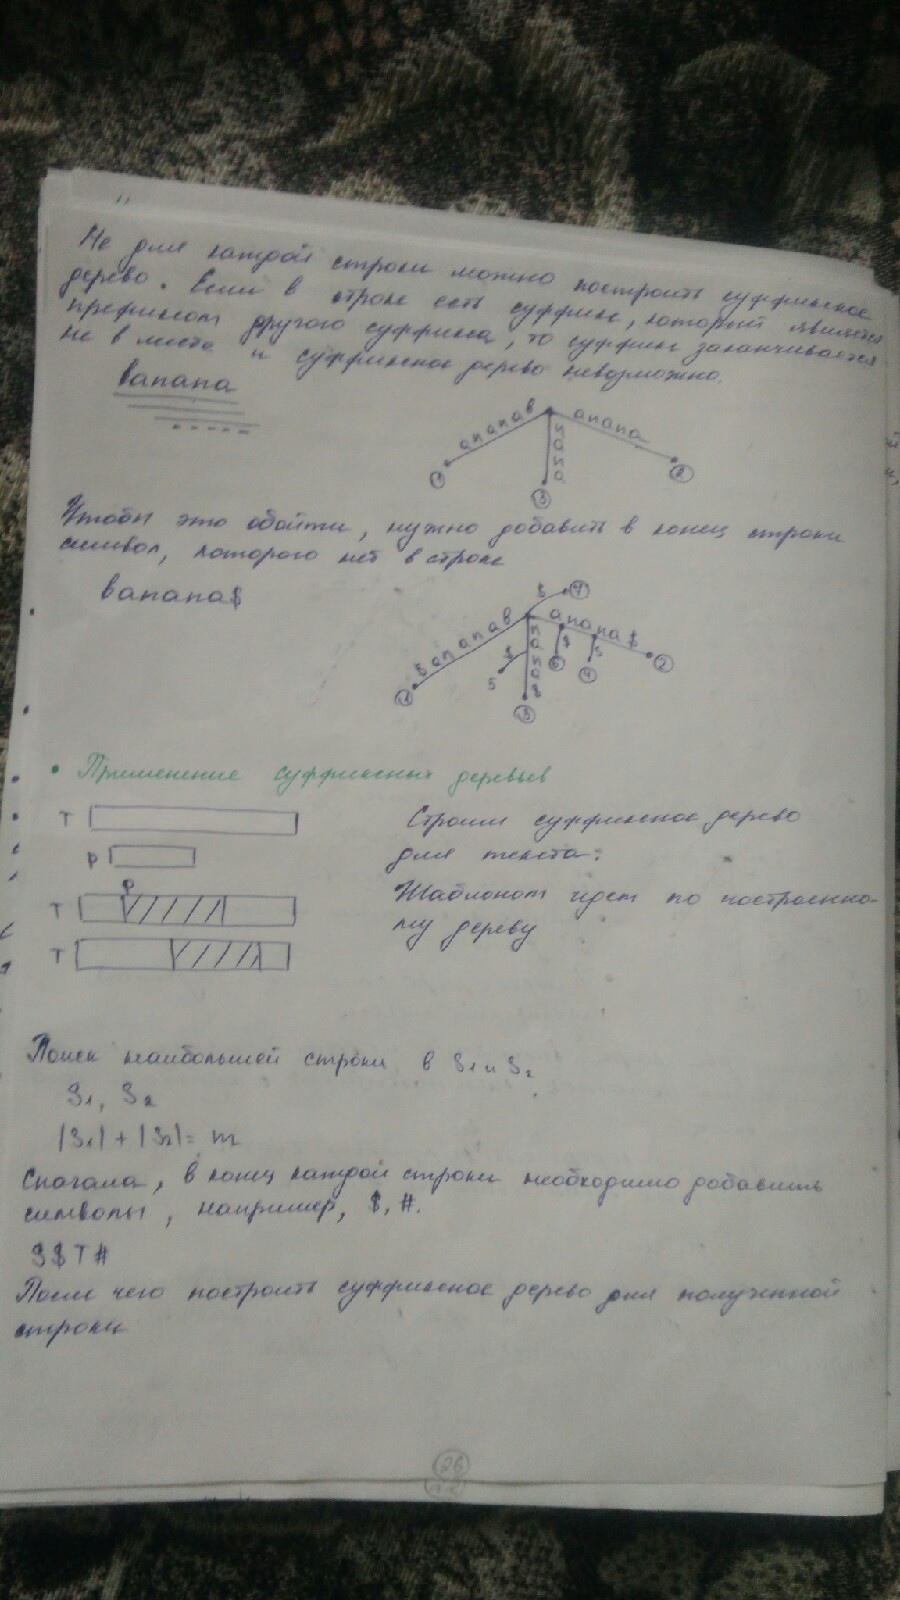 Не для каждой строки можно построить суффиксное
дерево. Если в строке есть суффикс, который является
префиксом другого суффикса, то суффикс заканчивается
не в листе и суффиксное дерево невозможно.
banana
banana
anana
nana
1
3
2
Чтобы это обойти, нужно добавить в конец строки
символ, которого нет в строке
banana$
$
7
banana$
anana$
nana$
$
$
$
5
6
4
2
1
3
• Применение суффиксных деревьев
T
Строим суффиксное дерево
P
для текста.
P
T
Шаблоном идем по построенно-
му дереву
T
Поиск наибольшей строки в S1 и S2
S1, S2
|S1| + |S2| = m
Сначала, в конец каждой строки необходимо добавить
символы, например, $, #.
S$T#
После чего построить суффиксное дерево для полученной
строки
26